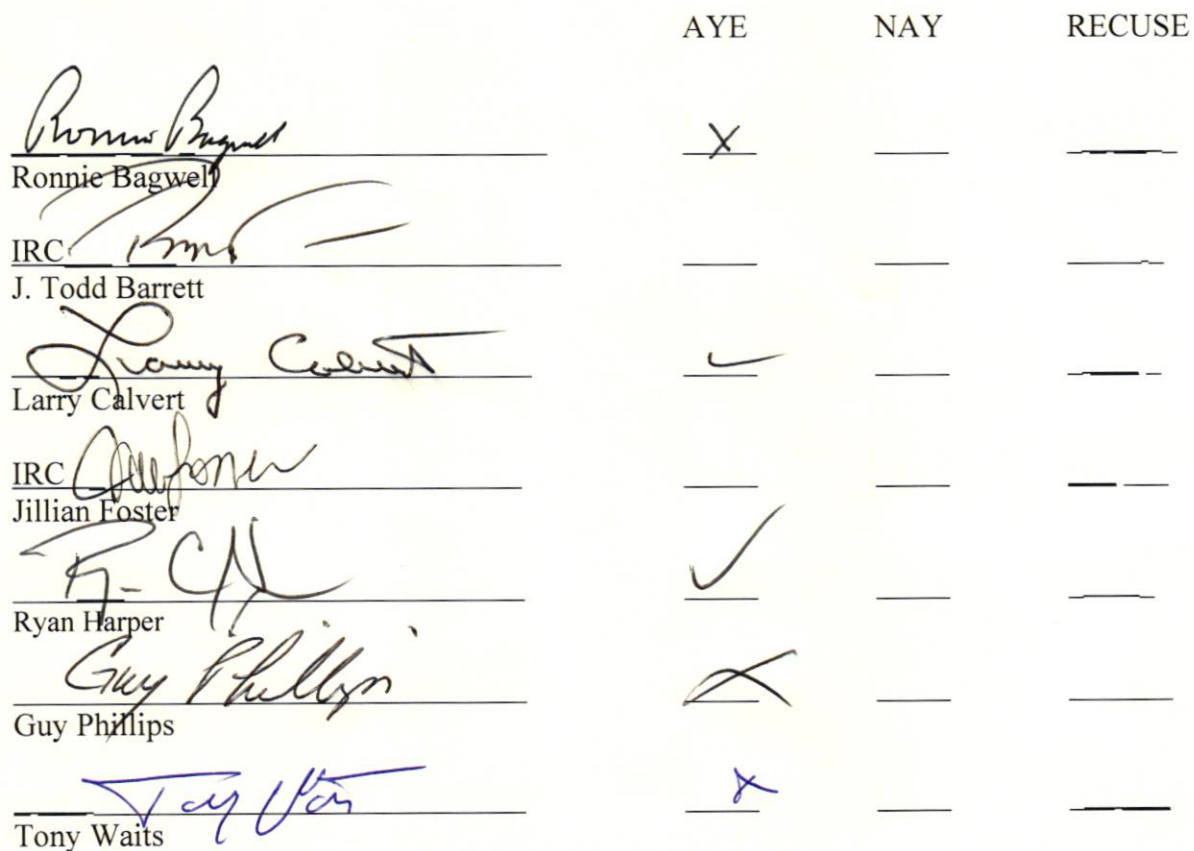 AYE NAY RECUSE
Ronnie Bagwell X
Ronnie Bagwell
IRC
J. Todd Barrett
Larry Calvert ✓
Larry Calvert
IRC
Jillian Foster
✓
Ryan Harper
Guy Phillips X
Guy Phillips
X
Tony Waits